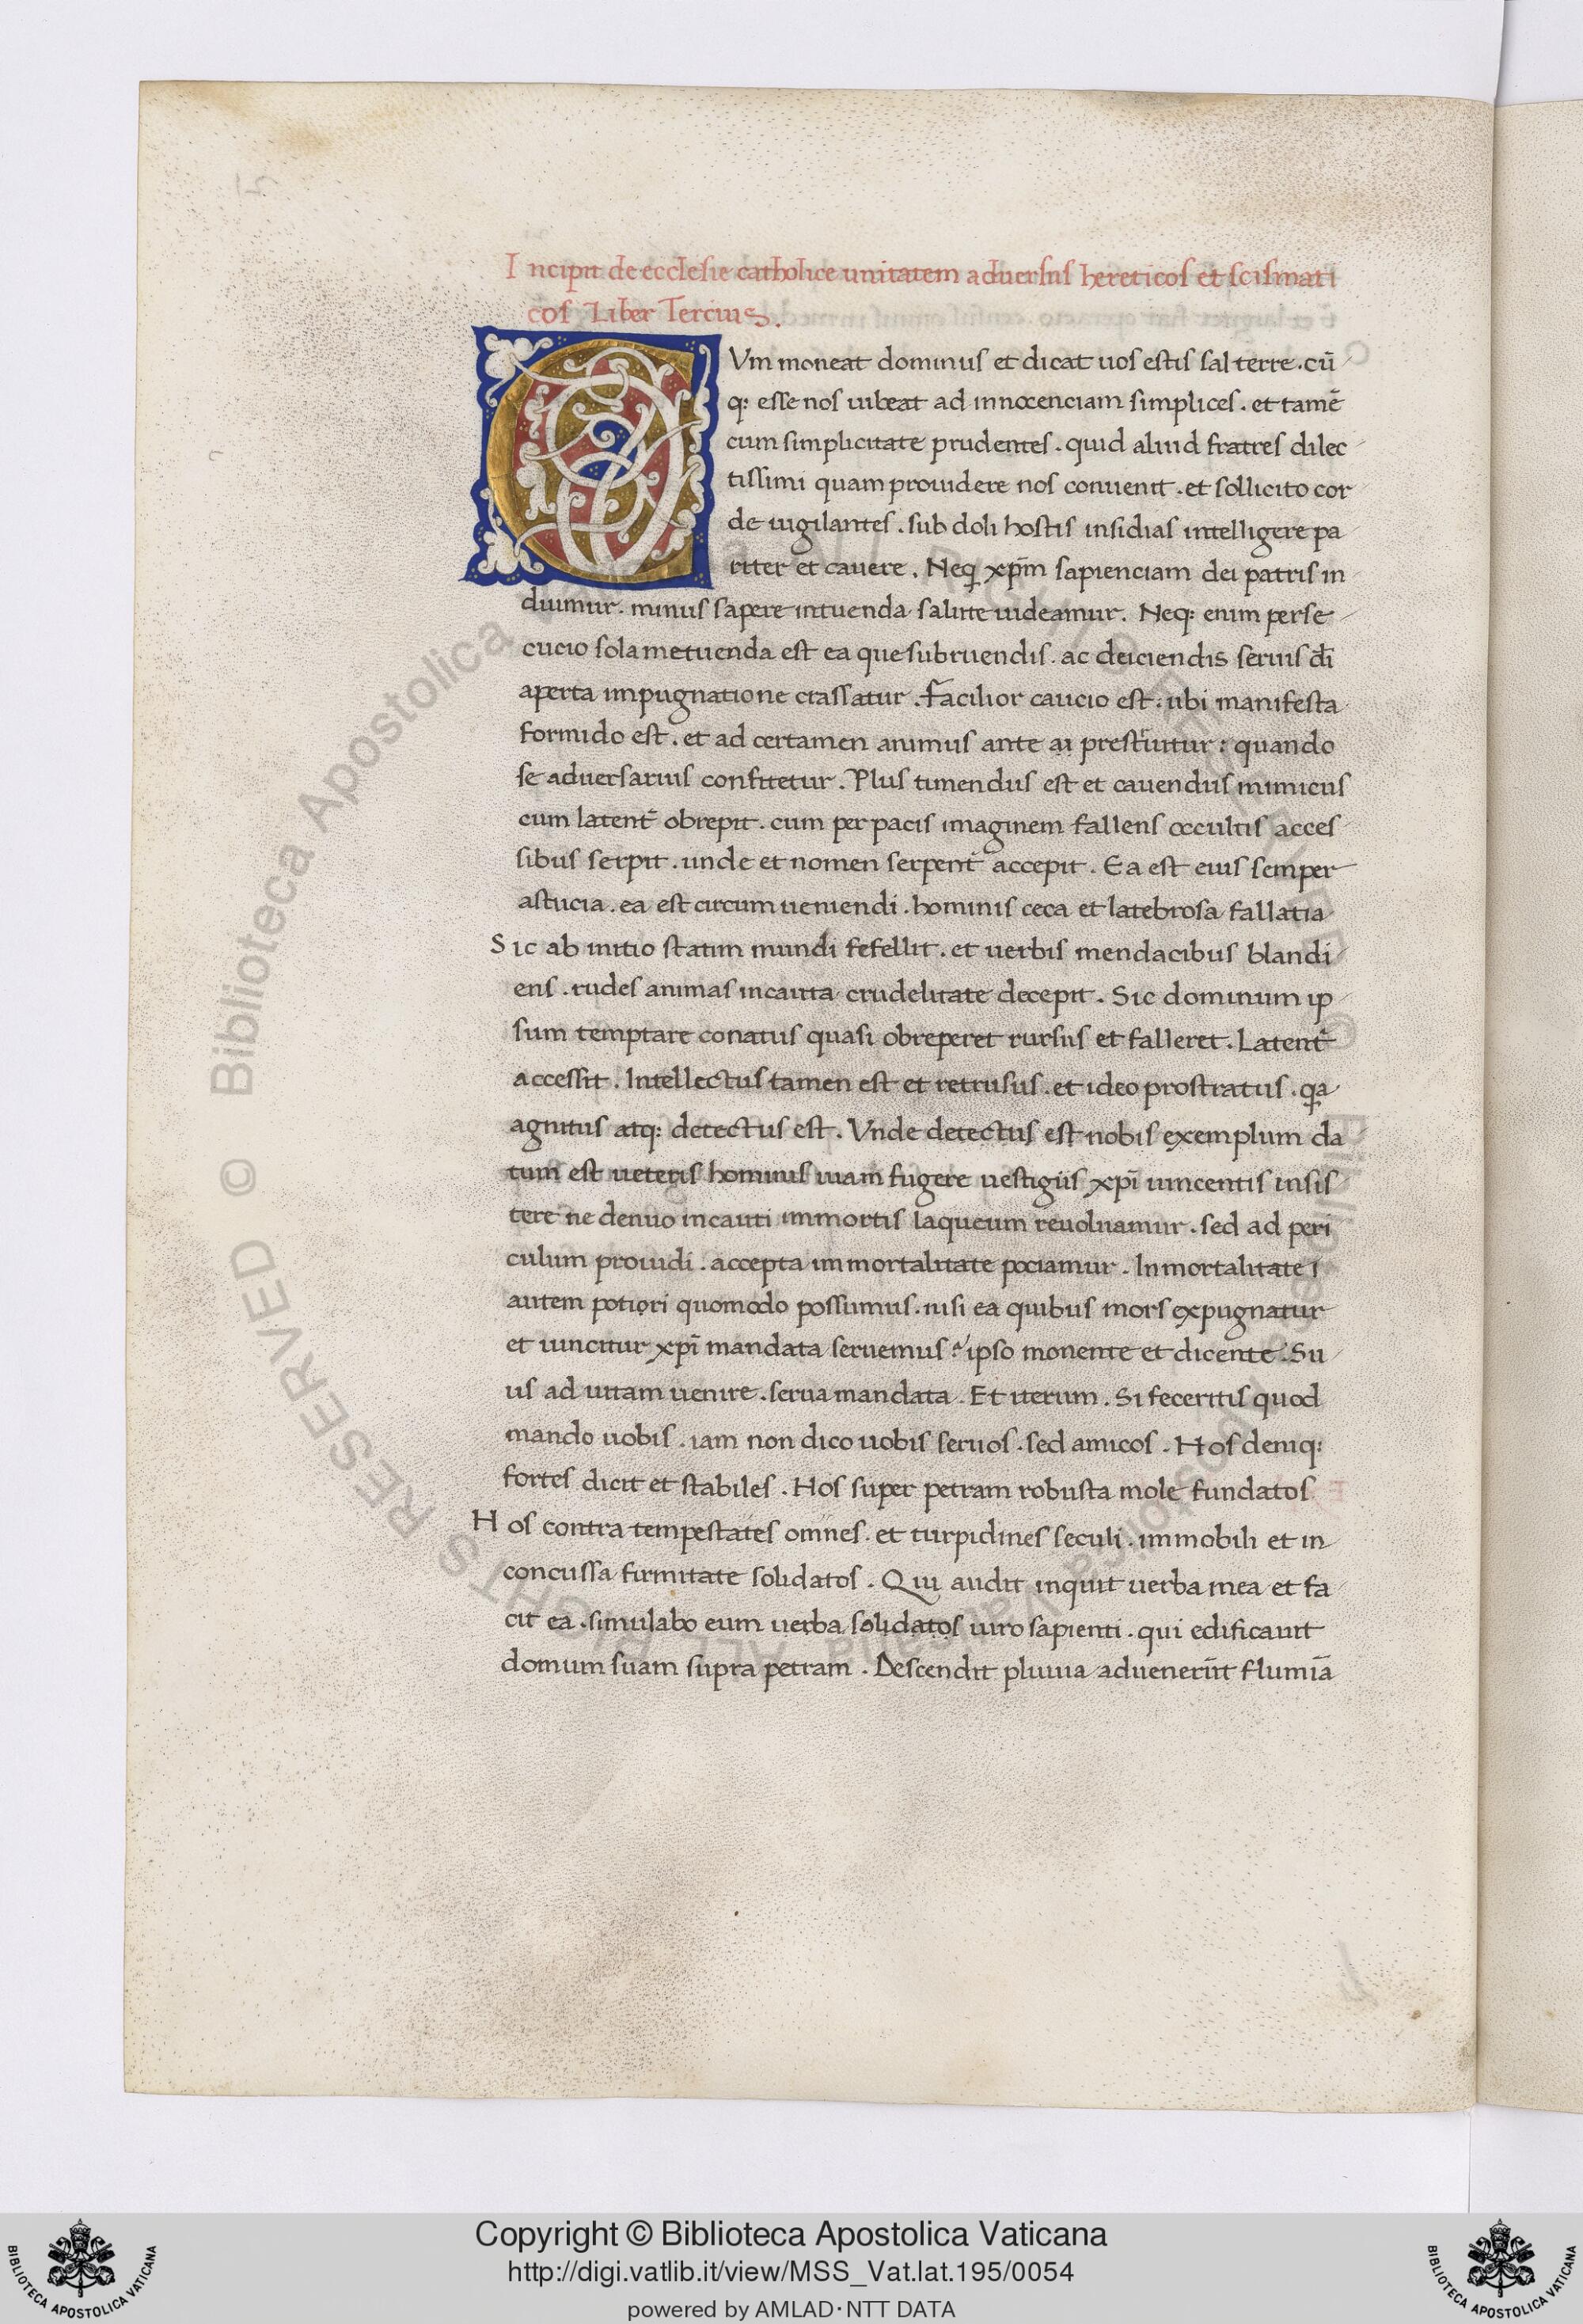 Incipit de ecclesie catholice unitatem aduersus hereticos et scismati
cos Liber Tercius.
CVm moneat dominus et dicat uos estis sal terre. cū
q: esse nos iubeat ad innocenciam simplices. et tamē
cum simplicitate prudentes. quid aliud fratres dilec
tissimi quam prouidere nos conuenit. et sollicito cor
de uigilantes. sub doli hostis insidias intelligere pa
riter et cauere. Neq xp̄m sapienciam dei patris in
duimur. minus sapere intuenda salute uideamur. Neq: enim perse
cucio sola metuenda est ea que subruendis. ac deiciendis seruis dī
aperta impugnatione crassatur. Facilior caucio est: ubi manifesta
formido est. et ad certamen animus ante ai prestruitur: quando
se aduersarius confitetur. Plus timendus est et cauendus inimicus
cum latent̄ obrepit. cum per pacis imaginem fallens occultis acces
sibus serpit. unde et nomen serpent̄ accepit. Ea est eius semper
astucia. ea est circumueniendi. hominis ceca et latebrosa fallatia
Sic ab initio statim mundi fefellit. et uerbis mendacibus blandi
ens. rudes animas incauta crudelitate decepit. Sic dominum ip
sum temptare conatus quasi obreperet rursus et falleret. Latent̄
accessit. Intellectus tamen est et retrusus. et ideo prostratus. qa
agnitus atq: detectus est. Vnde detectus est nobis exemplum da
tum est ueteris hominis uiam fugere uestigiis xp̄i uincentis insis
tere ne denuo incauti immortis laqueum reuoluamur. sed ad peri
culum prouidi. accepta immortalitate pociamur. Inmortalitate
autem potiori quomodo possumus. nisi ea quibus mors expugnatur
et uincitur xp̄i mandata seruemus: ipso monente et dicente. Su
us ad uitam uenire. serua mandata. Et iterum. Si feceritis quod
mando uobis. iam non dico uobis seruos. sed amicos. Hos deniq:
fortes dicit et stabiles. Hos super petram robusta mole fundatos
Hos contra tempestates omnes. et turpidines seculi. immobili et in
concussa firmitate solidatos. Qui audit inquit uerba mea et fa
cit ea. simulabo eum uerba solidatos uiro sapienti. qui edificauit
domum suam supra petram. Descendit pluuia aduenerūt flumīa
Copyright © Biblioteca Apostolica Vaticana
http://digi.vatlib.it/view/MSS_Vat.lat.195/0054
powered by AMLAD·NTT DATA
BIBLIOTECA APOSTOLICA VATICANA
BIBLIOTECA APOSTOLICA VATICANA
© Biblioteca Apostolica Vaticana ALL RIGHTS RESERVED